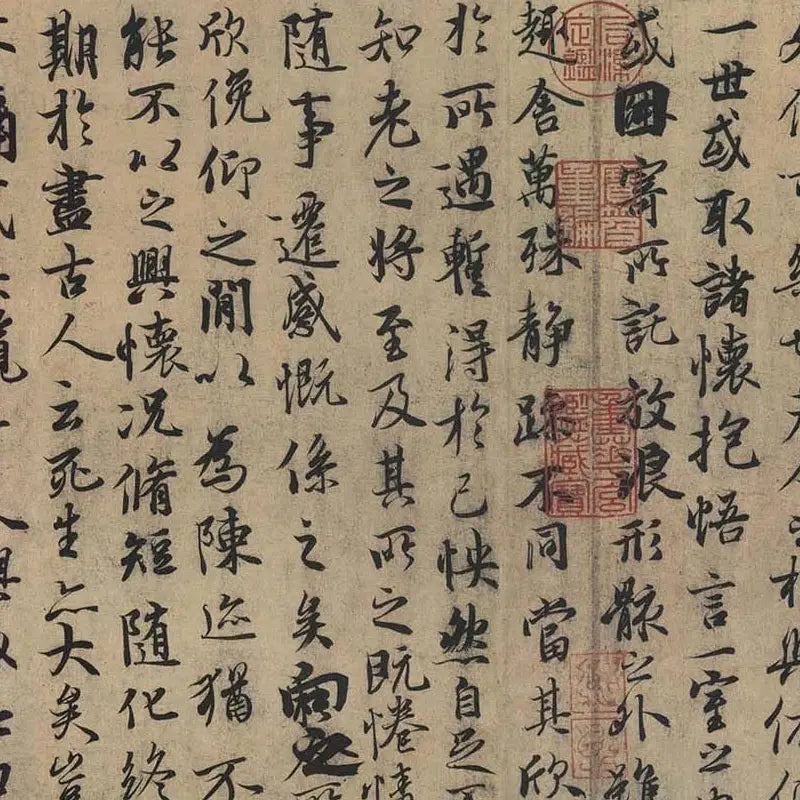 信可樂也夫人之相與俯仰
一世或取諸懷抱悟言一室之
或因寄所託放浪形骸之外雖
趣舍萬殊靜躁不同當其欣
於所遇蹔得於己怏然自足不
知老之將至及其所之既惓情
隨事遷感慨係之矣向之所
欣俛仰之閒以為陳迹猶不
能不以之興懷況脩短隨化終
期於盡古人云死生亦大矣豈